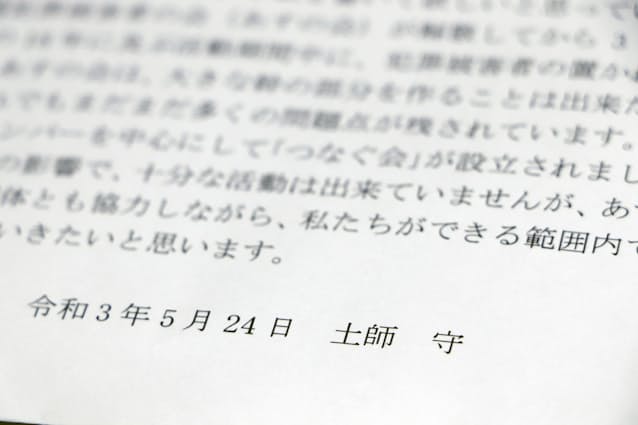 が解散してから3
に及ぶ活動期間中に、犯罪被害者の置か
あすの会は、大きな幹の部分を作ることは出来た
でもまだまだ多くの問題点が残されています。
ンバーを中心にして「つなぐ会」が設立されまし
の影響で、十分な活動は出来ていませんが、あす
体とも協力しながら、私たちができる範囲内で
いきたいと思います。
令和3年5月24日 土師 守